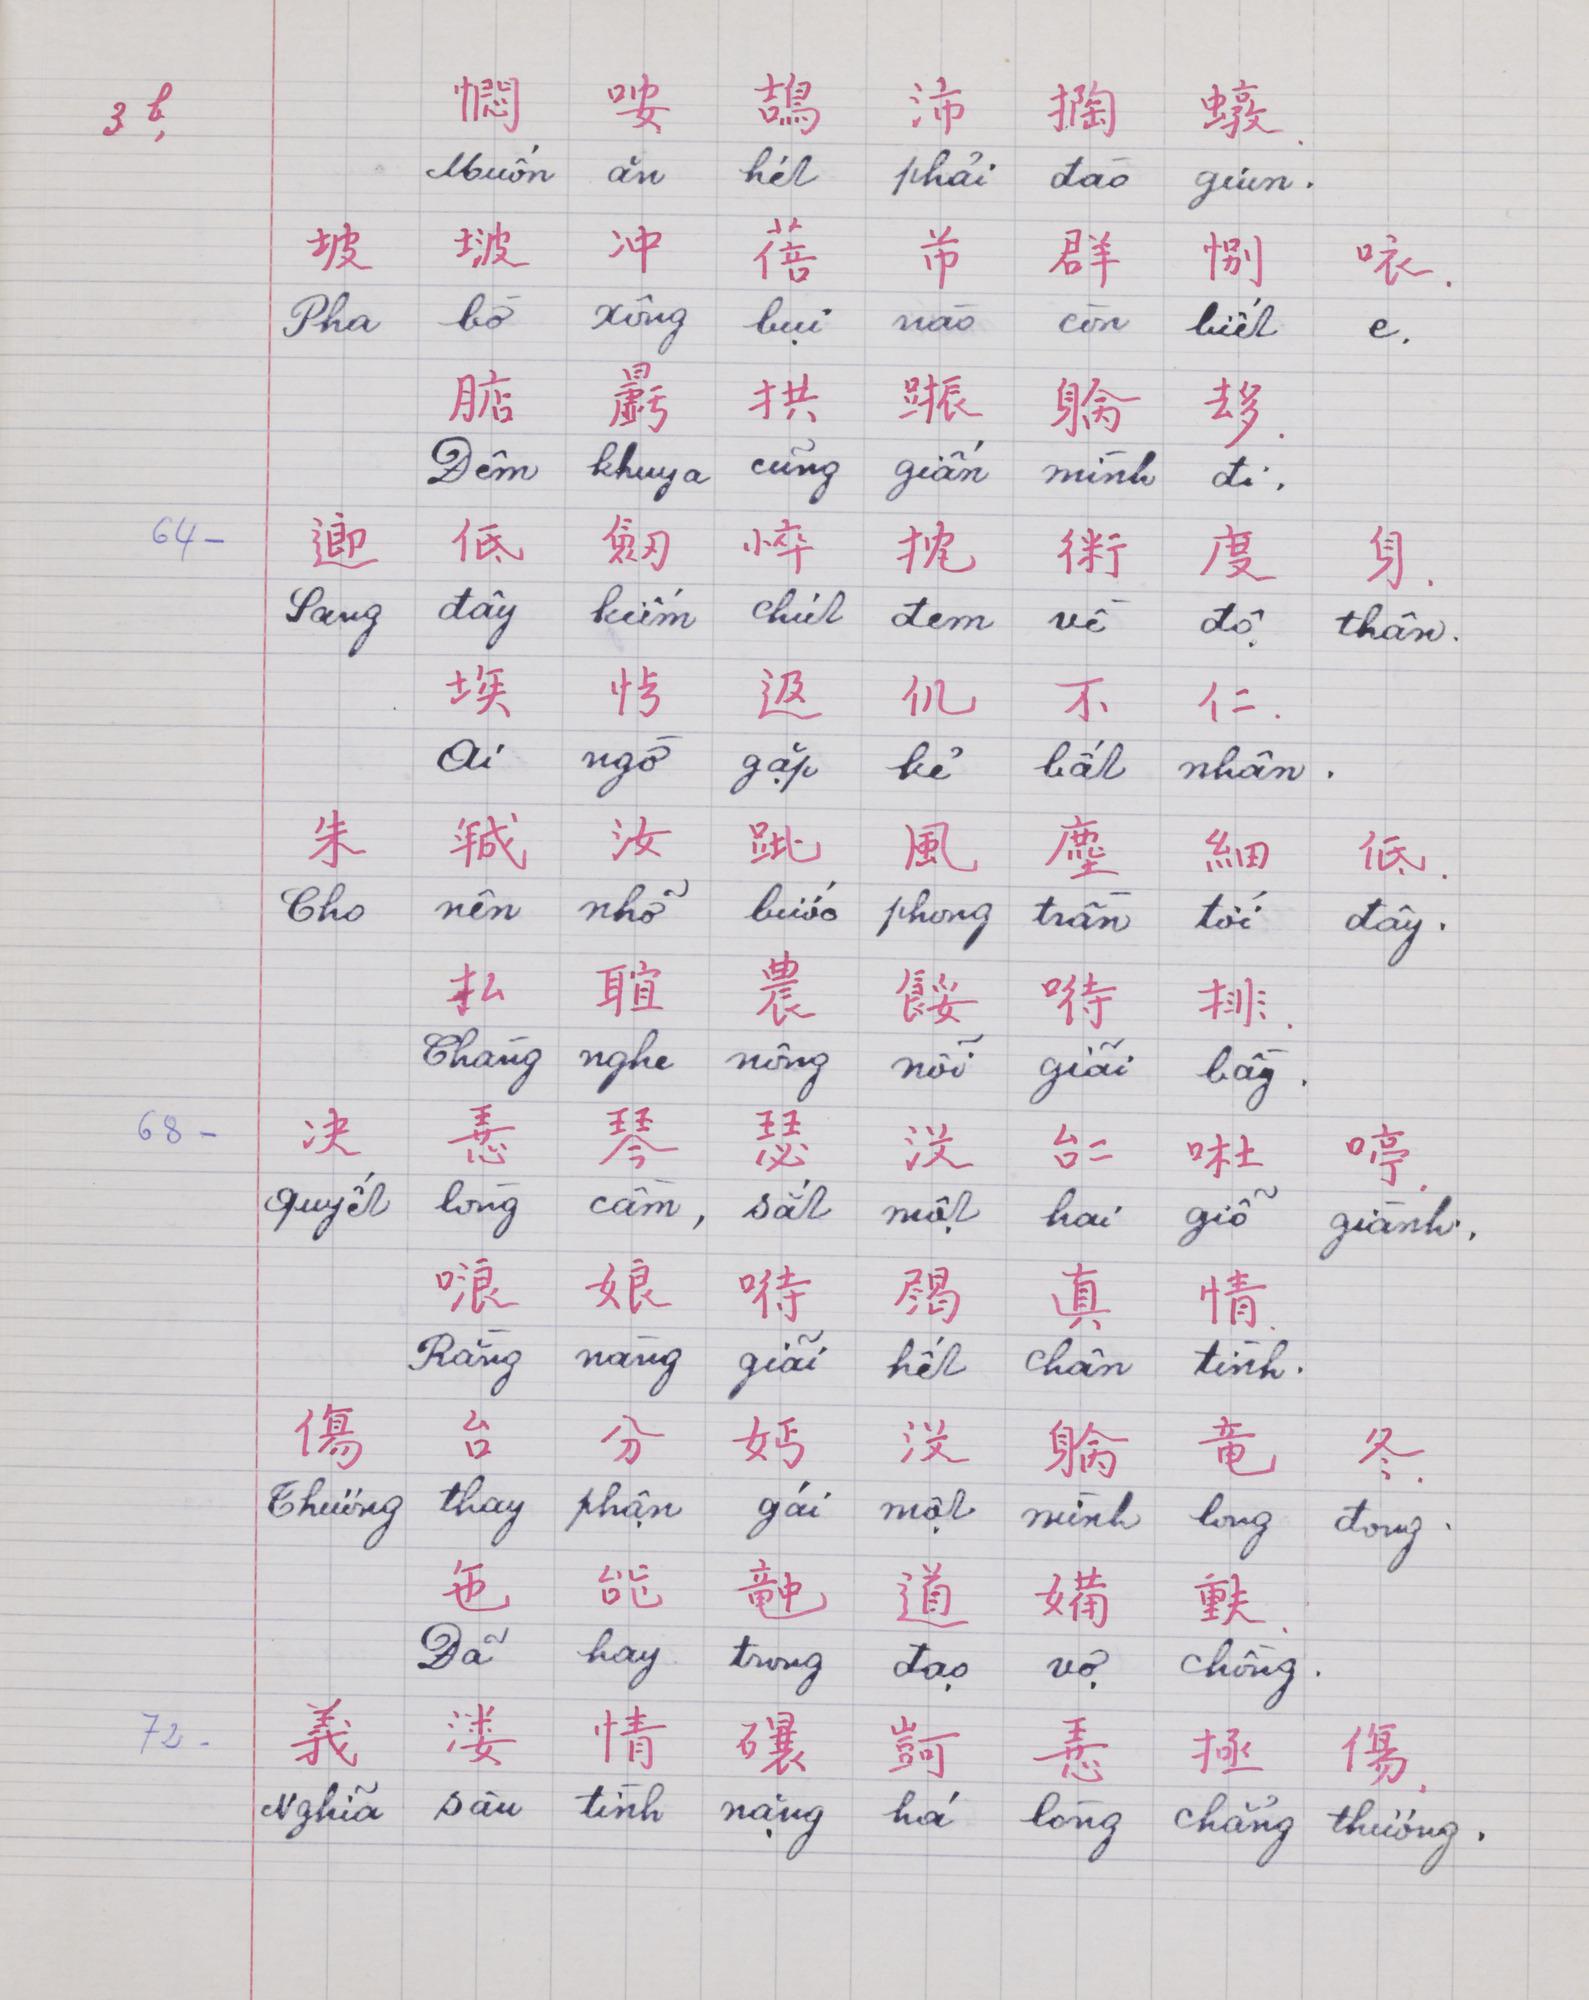 3b,
憫 𠰃 鵠 沛 掏 蠍.
Muốn ăn hét phải đào giun.
坡 𡋿 冲 蓓 芇 群 𢘾 𠲖.
Pha bờ xông bụi nào còn biết e.
𣈘 𣌉 拱 踬 𨉟 𠫾.
Đêm khuya cũng giấn mình đi.
64 – 𨖅 低 劒 悴 抌 術 度 身.
Sang đây kiếm chút đem về độ thân.
埃 𢗷 返 仉 不 仁.
Ai ngờ gặp kẻ bất nhân.
朱 𢧚 汝 跐 風 塵 細 低.
Cho nên nhỡ bước phong trần tới đây.
払 聢 農 餒 㗂 排.
Chàng nghe nông nỗi giãi bầy.
68 – 决 𢚸 琴 瑟 没 𠄩 𠰺 哼.
Quyết lòng cầm, sắt một hai giỗ giành.
哴 娘 㗂 歇 真 情.
Rằng nàng giãi hết chân tình.
傷 台 分 𡛔 没 𨉟 竜 冬.
Thương thay phận gái một mình long đong.
㐌 能 𥪝 道 𡞕 𫯳.
Đã hay trong đạo vợ chồng.
72 - 義 溇 情 𥗾 𠹾 𢚸 拯 傷.
Nghĩa sâu tình nặng há lòng chẳng thương.